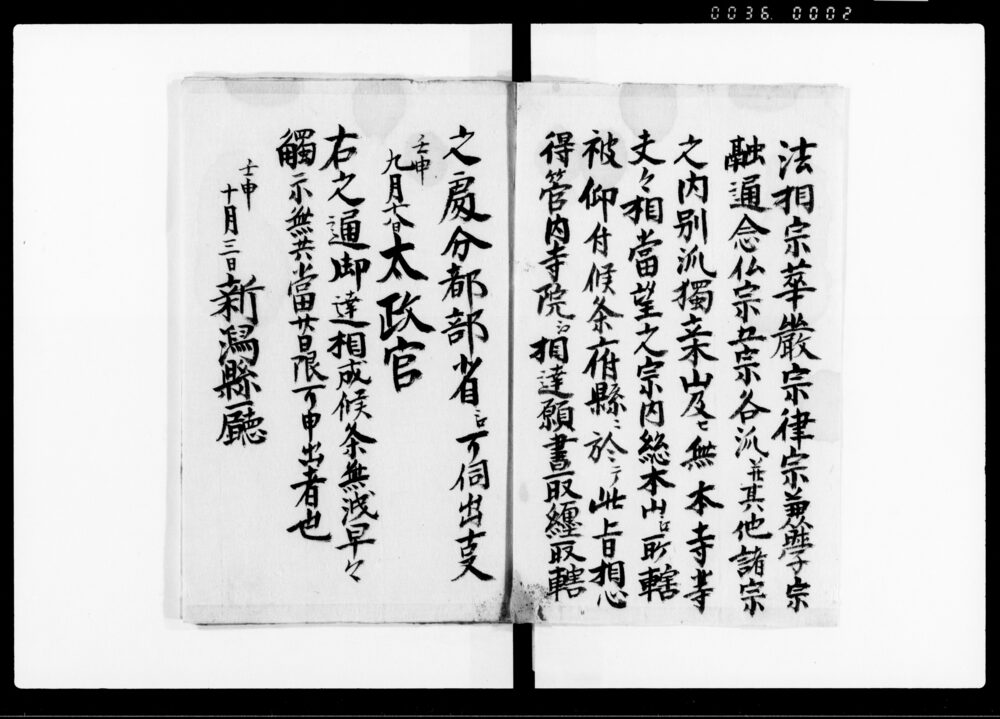 0036 0002
法相宗華嚴宗律宗兼學宗
融通念仏宗五宗各派並其他諸宗
之内別派獨立本山及ヒ無本寺等
夫々相當望之宗内総本山江所轄
被仰付候条府縣ニ於テ此旨相心
得管内寺院江相達願書取纒取轄
之處分都部省江可伺出支
壬申
九月十八日太政官
右之通御達相成候条無浅早々
觸示無共當廿日限可申出者也
壬申
十月三日新潟縣廳